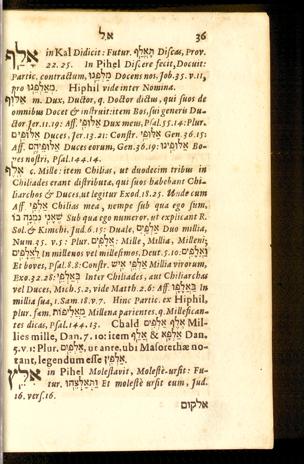 אל 36
אָלַף in Kal Didicit: Futur. תֶּאֱלַף Discas, Prov.
22.25. In Pihel Discere fecit, Docuit:
Partic. contractum, מַלְּפֵנוּ Docens nos. Job. 35. v. 11,
pro מְאַלְּפֵנוּ. Hiphil vide inter Nomina.
אַלּוּף m. Dux, Ductor, q. Doctor dictus, qui suos de
omnibus Docet & instruit: item Bos, sui generis Du-
ctor. Jer. 11. 19: Aff. אַלּוּפִי Dux meus, Psal. 55. 14: Plur.
אַלּוּפִים Duces. Jer. 13. 21: Constr. אַלּוּפֵי Gen. 36. 15:
Aff. אַלּוּפֵיהֶם Duces eorum, Gen. 36. 19: אַלּוּפֵינוּ Bo-
ves nostri, Psal. 144. 14.
אֶלֶף c. Mille: item Chilias, ut duodecim tribus in
Chiliades erant distributæ, qui suos habebant Chi-
liarchos & Duces, ut legitur Exod. 18. 25. Unde cum
Aff. אַלְפִּי Chilias mea, nempe sub qua ego sum,
Sub qua ego numeror, ut explicant R.
Sol. & Kimchi. Jud. 6. 15: Duale, אַלְפַּיִם Duo millia,
Num. 35. v. 5: Plur. אֲלָפִים: Mille, Millia, Milleni;
לַאֲלָפִים In milleuos vel millesimos, Deut. 5. 10:
Et boves, Psal. 8. 8: Constr. אַלְפֵי אִישׁ Millia virorum,
Exo. 32. 28: בְּאַלְפֵי Inter Chiliades, aut Chiliarchas
vel Duces, Mich. 5. 2, vide Matth. 2. 6: Aff. In
millia sua, 1. Sam. 18. v. 7. Hinc Partic. ex Hiphil,
plur. fæm. מַאֲלִיפוֹת Millena parientes. q. Millefican-
tes dicas, Psal. 144. 13. Chald אֶלֶף אַלְפִים Mil-
lies mille, Dan. 7. 10: item אֲלַף & אַלְפָא Dan.
5. v. 1: Plur. אַלְפִים, ut ante, ubi Masorethæ no-
tant, legendum esse אַלְפִין.
אָלַץ in Pihel Molestavit, Molestè ursit: Fu-
tur. וַתְּאַלְצֵהוּ Et molestè ursit eum, Jud.
16. vers. 16.
אלקום